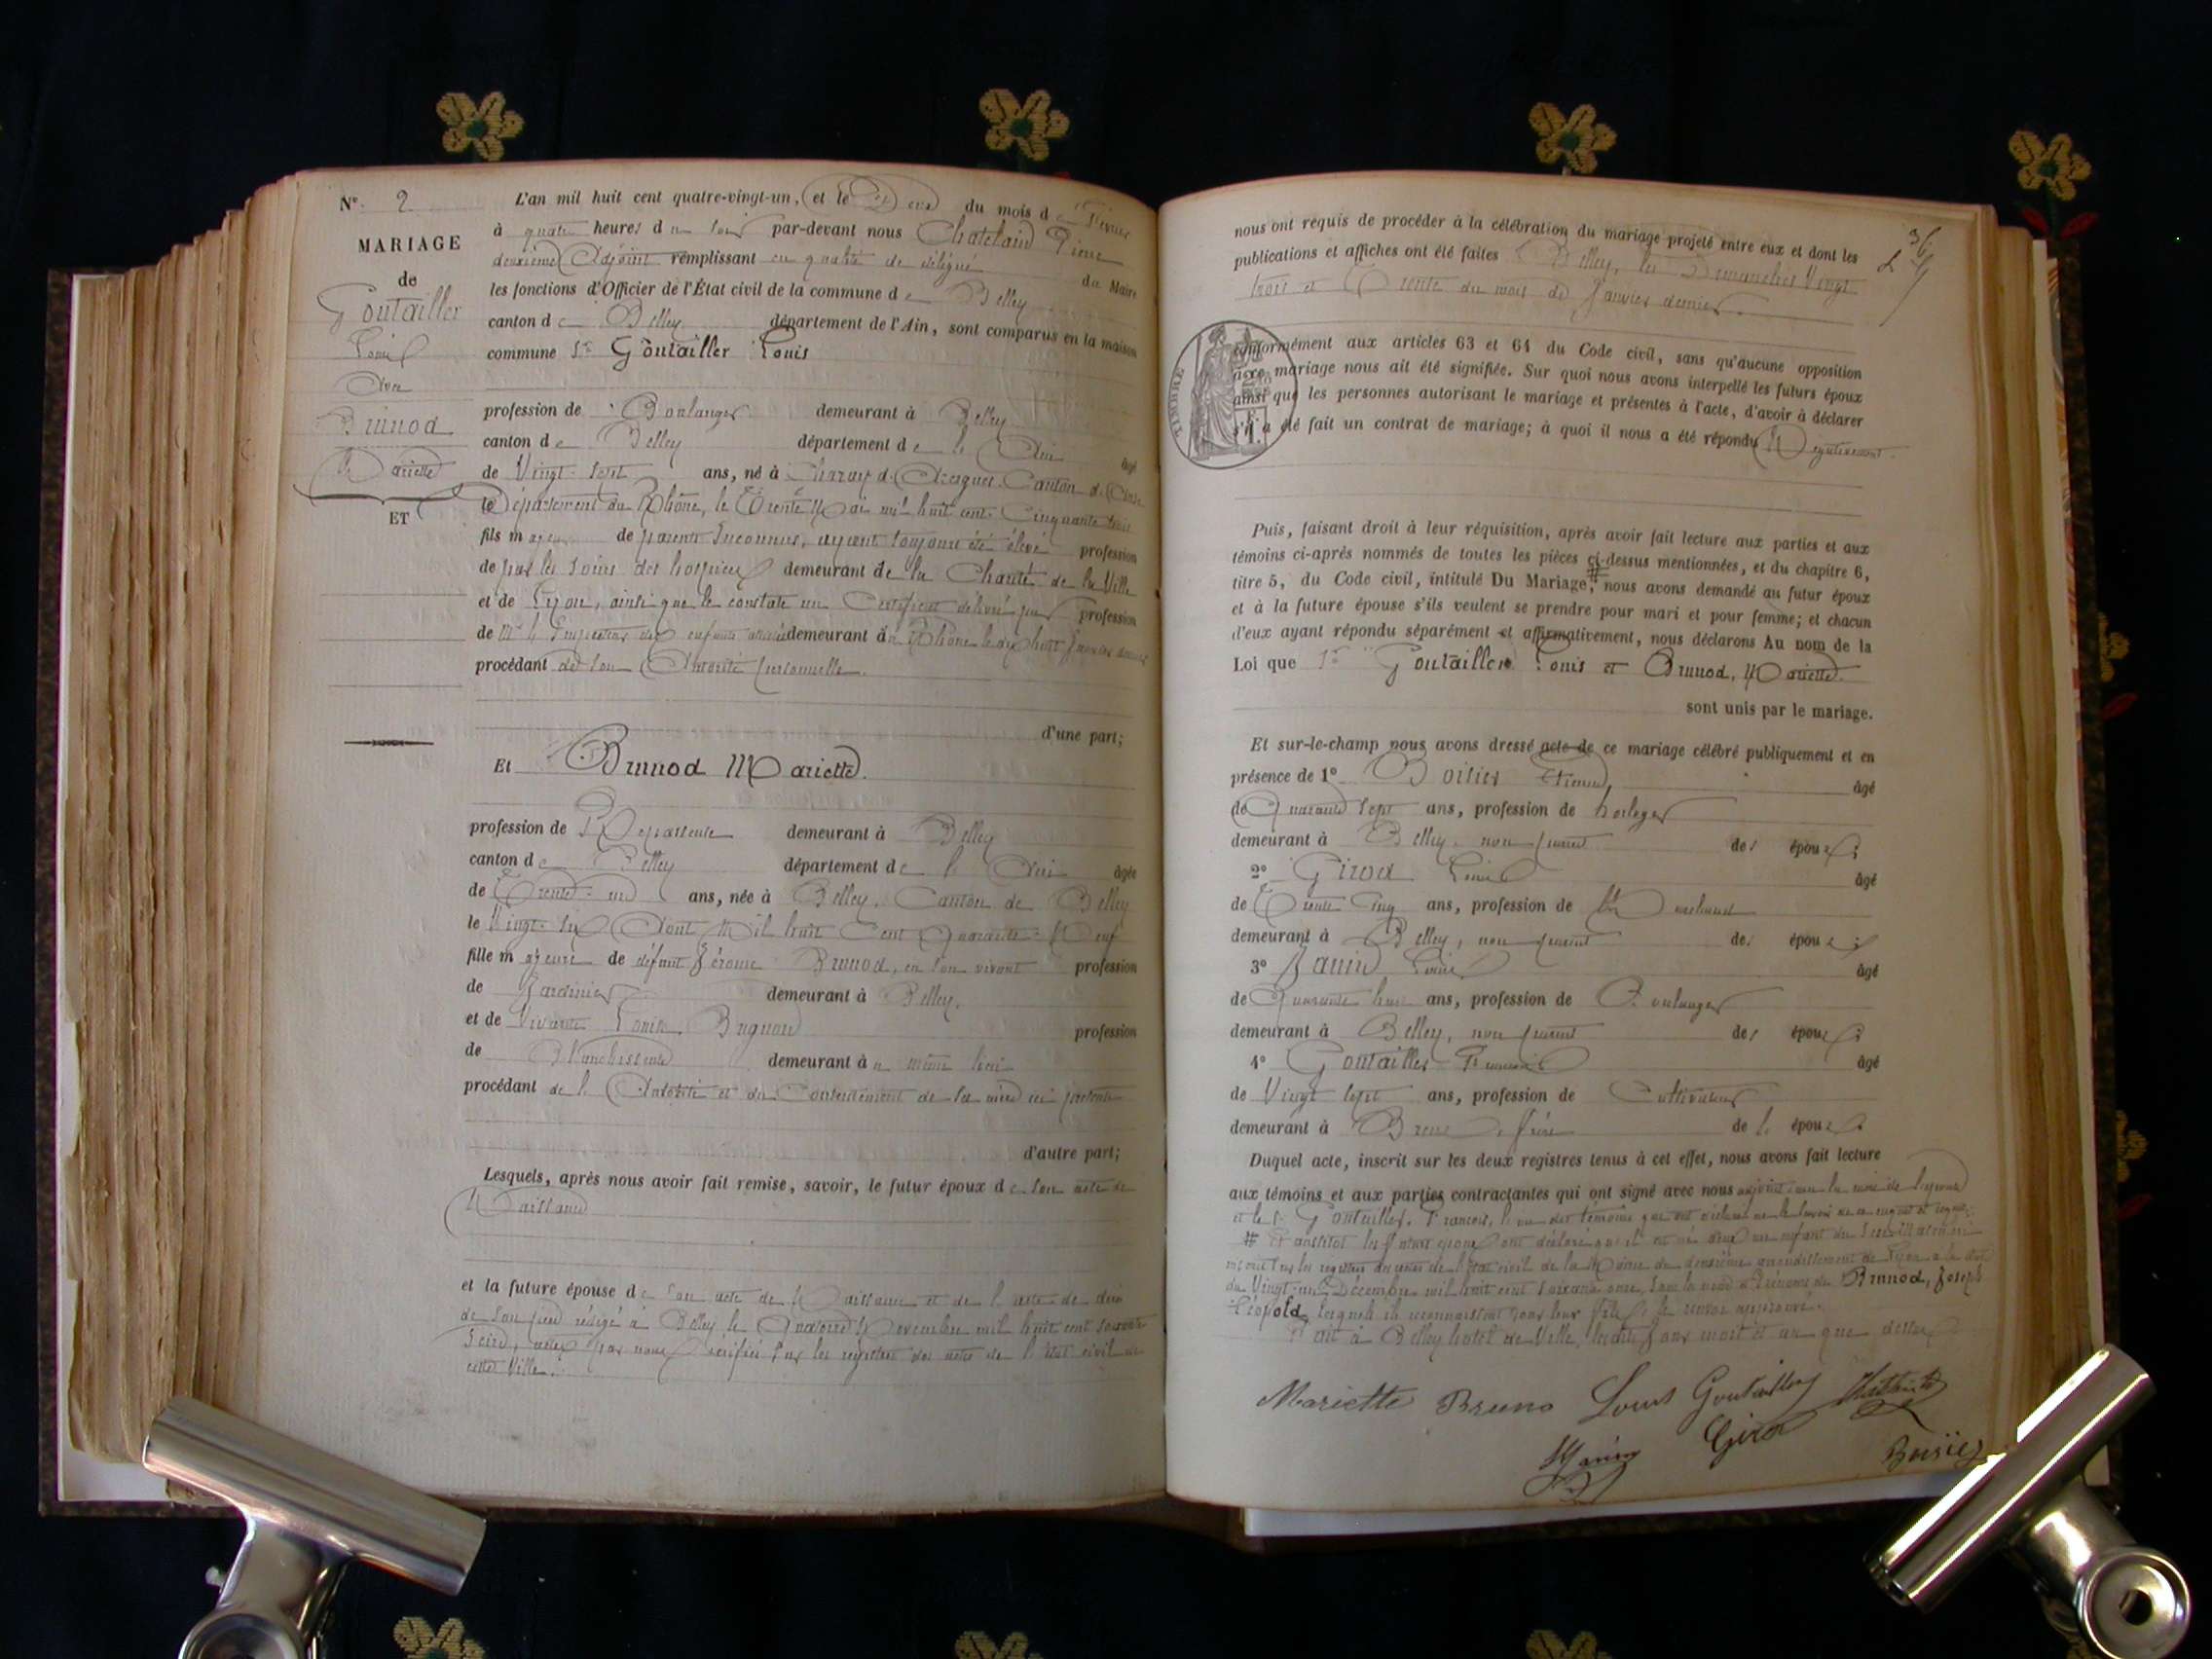 N° 2
MARIAGE
de
Goutailler
Louis
Avec
Brunod
Mariette
ET
L'an mil huit cent quatre-vingt-un, et le Deux du mois de Février
à quatre heures du soir par-devant nous Chatelain Pierre
deuxième Adjoint remplissant en qualité de délégué du Maire
les fonctions d'Officier de l'État civil de la commune de Belley
canton de Belley département de l'Ain, sont comparus en la maison
commune Sr Goutailler Louis
profession de Boulanger demeurant à Belley
canton de Belley département de l'Ain âgé
de Vingt-sept ans, né à Canton
le Département du Rhône, le Trente Mai mil huit cent Cinquante trois
fils majeur de parents Inconnus, ayant toujours été élevé profession
de par les soins des hospices demeurant de la Charité de la Ville
et de Lyon, ainsi que le constate un Certificat délivré par profession
de Mr l'Inspecteur des enfants demeurant à Rhône le dix huit Janvier dernier
procédant de son Autorité personnelle.
d'une part;
Et Brunod Mariette.
profession de Repasseuse demeurant à Belley
canton de Belley département de l'Ain âgée
de Trente-un ans, née à Belley, Canton de Belley
le Vingt-six Aout Mil huit Cent Quarante-Neuf
fille majeure de défunt Jérome Brunod, en son vivant profession
de Jardinier demeurant à Belley.
et de Vivante Louise profession
de Blanchisseuse demeurant au même lieu
procédant de l'Autorité et du Consentement de sa mère ici présente
d'autre part;
Lesquels, après nous avoir fait remise, savoir, le futur époux de son acte de
Naissance
et la future épouse de son acte de Naissance et de l'acte de décès
de son père rédigé à Belley le Quatorze Novembre mil huit cent soixante
Seize, actes par nous vérifiés sur les registres des actes de l'État civil de
cette Ville.
nous ont requis de procéder à la célébration du mariage projeté entre eux et dont les
publications et affiches ont été faites à Belley, les Dimanches Vingt
trois et Trente du mois de Janvier dernier.
TIMBRE
conformément aux articles 63 et 64 du Code civil, sans qu'aucune opposition
à ce mariage nous ait été signifiée. Sur quoi nous avons interpellé les futurs époux
ainsi que les personnes autorisant le mariage et présentes à l'acte, d'avoir à déclarer
s'il a été fait un contrat de mariage; à quoi il nous a été répondu Négativement.
Puis, faisant droit à leur réquisition, après avoir fait lecture aux parties et aux
témoins ci-après nommés de toutes les pièces ci-dessus mentionnées, et du chapitre 6,
titre 5, du Code civil, intitulé Du Mariage, # nous avons demandé au futur époux
et à la future épouse s'ils veulent se prendre pour mari et pour femme; et chacun
d'eux ayant répondu séparément et affirmativement, nous déclarons Au nom de la
Loi que Sr Goutailler Louis et Brunod, Mariette.
sont unis par le mariage.
Et sur-le-champ nous avons dressé acte de ce mariage célébré publiquement et en
présence de 1° Boisier Etienne âgé
de Quarante sept ans, profession de horloger
demeurant à Belley, non parent des époux;
2° Girod Louis âgé
de Trente Cinq ans, profession de Marchand
demeurant à Belley, non parent des époux;
3° Janin Louis âgé
de Quarante huit ans, profession de Boulanger
demeurant à Belley, non parent des époux;
4° Goutailler François âgé
de Vingt sept ans, profession de Cultivateur
demeurant à frère de l'époux
Duquel acte, inscrit sur les deux registres tenus à cet effet, nous avons fait lecture
aux témoins et aux parties contractantes qui ont signé avec nous la mère de l'épouse
et le Sr Goutailler, François, l'un des témoins qui ont déclaré ne le savoir de ce enquis et requis.
# Et aussitot les futurs époux ont déclaré qu'il est né d'eux un enfant du sexe Masculin
inscrit sur les registres des actes de l'État civil de la Mairie du deuxième arrondissement de Lyon à la date
du Vingt-un Décembre mil huit cent soixante onze, sous le nom et Prénoms de Brunod, Joseph
Léopold, lequel ils reconnaissent pour leur fils. le renvoi approuvé.
Fait à Belley hotel de Ville, lesdits jour mois et an que dessus
Mariette Bruno Louis Goutailler
Janin Girod Boisier